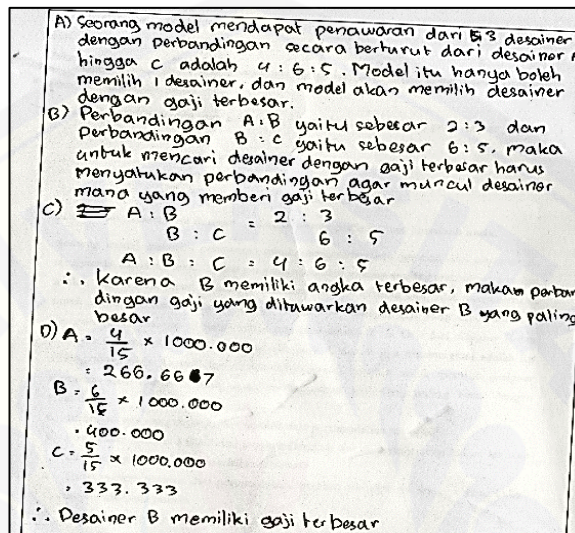 A) Seorang model mendapat penawaran dari 3 desainer
dengan perbandingan secara berturut dari desainer A
hingga C adalah 4 : 6 : 5. Model itu hanya boleh
memilih 1 desainer, dan model akan memilih desainer
dengan gaji terbesar.
B) Perbandingan A : B yaitu sebesar 2 : 3 dan
perbandingan B : C yaitu sebesar 6 : 5, maka
untuk mencari desainer dengan gaji terbesar harus
menyatukan perbandingan agar muncul desainer
mana yang memberi gaji terbesar
C) A : B = 2 : 3
B : C 6 : 5
A : B : C = 4 : 6 : 5
∴ Karena B memiliki angka terbesar, maka perban
dingan gaji yang ditawarkan desainer B yang paling
besar
D) A = 4/15 × 1000.000
= 266.667
B = 6/15 × 1000.000
= 400.000
C = 5/15 × 1000.000
= 333.333
∴ Desainer B memiliki gaji terbesar